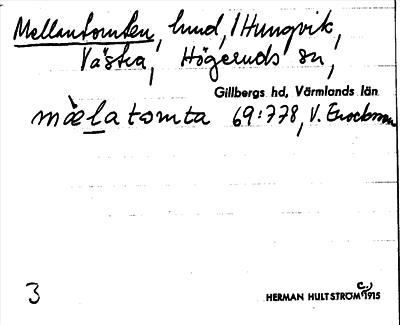 Mellantomten, hmd, i Hungvik,
Västra, Högeruds sn,
Gillbergs hd, Värmlands län
mæ̀la tomta 69:778, V. Enockson
3
HERMAN HULTSTRÖM C.) 1915